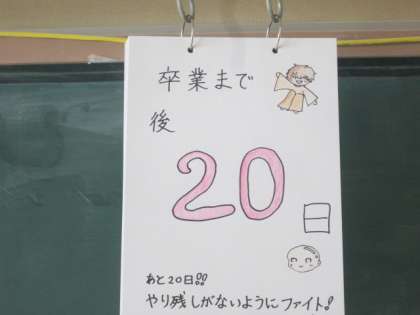 卒業まで
後
20日
あと20日!!
やり残しがないようにファイト!